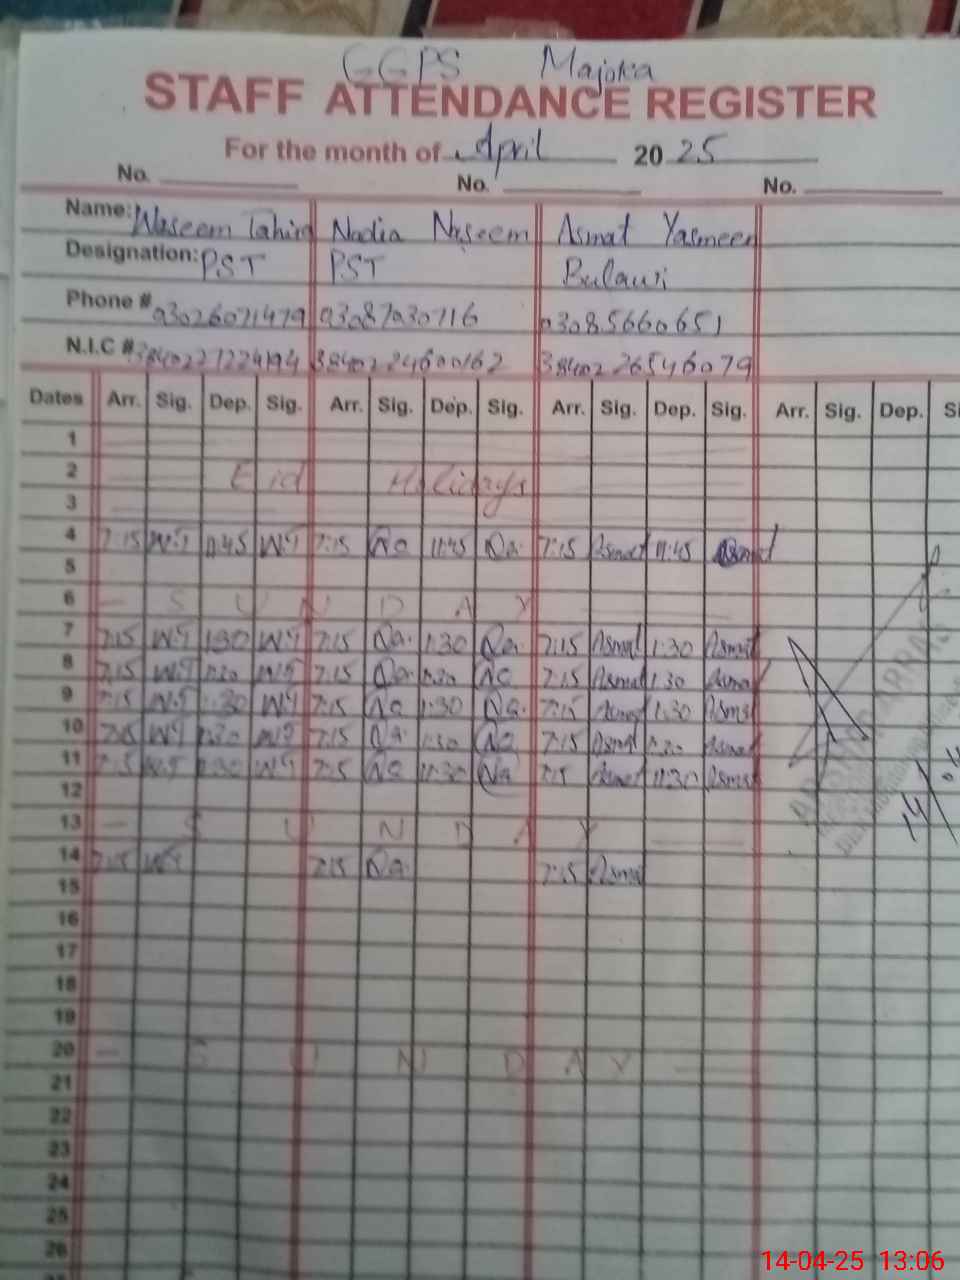 GGPS Majoka
STAFF ATTENDANCE REGISTER
For the month of April 20 25
No. No. No.
Name: Waseem Tahira Nadia Naseem Asmat Yasmeen
Designation: PST PST
Phone # 03026071479 03087030716 03085660651
N.I.C # 3840224600162 3840226546079
Dates Arr. Sig. Dep. Sig. Arr. Sig. Dep. Sig. Arr. Sig. Dep. Sig. Arr. Sig. Dep.
1
2 Eid Holidays
3
4 7:15 W.T 11:45 W.T 7:15 Na 11:45 Na 7:15 Asmat 11:45 Asmat
5
6 SUNDAY
7 7:15 W.T 1:30 W.T 7:15 Na 1:30 Na 7:15 Asmat 1:30 Asmat
8 7:15 W.T 1:30 W.T 7:15 Na 1:30 Na 7:15 Asmat 1:30 Asmat
9 7:15 W.T 1:30 W.T 7:15 Na 1:30 Na 7:15 Asmat 1:30 Asmat
10 7:15 W.T 1:30 W.T 7:15 Na 1:30 Na 7:15 Asmat 1:30 Asmat
11 7:15 W.T W.T 7:15 Na 11:30 Na 7:15 Asmat 11:30 Asmat
12
13 SUNDAY
14 7:15 W.T 7:15 Na 7:15 Asmat
15
16
17
18
19
20 SUNDAY
21
22
23
24
25
26
14-04-25 13:06